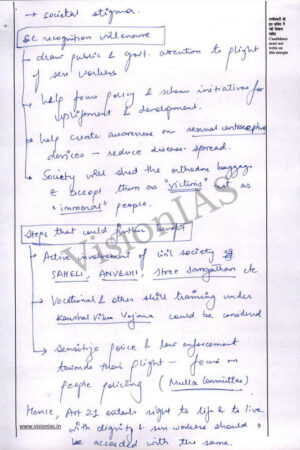 → societal stigma.
SC recognition will ensure
→ draw public & govt. attention to plight
of sex workers
→ help focus policy & scheme initiatives for
upliftment & development.
→ help create awareness on sexual contraceptive
devices – reduce disease spread.
→ Society will shed the orthodox baggage
& accept them as "victims" not as
"immoral" people.
Steps that could further benefit
→ Active involvement of civil society eg
SAHELI, ANVESHI, Stree Sangathan etc
→ Vocational & other skill training under
Kaushal Vikas Yojana could be considered
→ Sensitize police & law enforcement
towards their plight – focus on
people policing (Mulla Committee)
Hence, Art 21 entails right to life & to live
with dignity & sex workers should
be accorded with the same.
उम्मीदवारों को
इस हाशिए में
नहीं लिखना
चाहिए
Candidates
must not
write on
this margin
VisionIAS
www.visionias.in
9